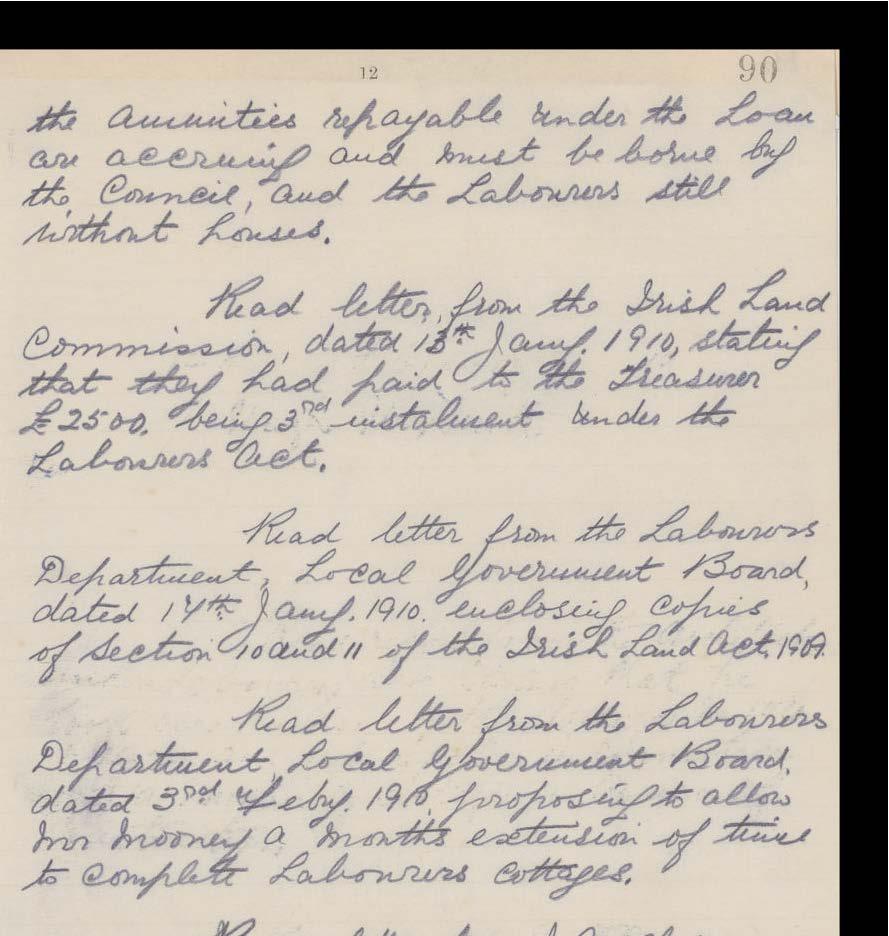 12
90
the Annuities repayable under the Loan
are accruing and must be borne by
the Council, and the Labourers still
without houses.
Read letter, from the Irish Land
Commission, dated 13th Jany. 1910, stating
that they had paid to the Treasurer
£2500. being 3rd instalment under the
Labourers Act.
Read letter from the Labourers
Department, Local Government Board,
dated 14th Jany. 1910. enclosing copies
of Section 10 and 11 of the Irish Land Act, 1909.
Read letter from the Labourers
Department, Local Government Board,
dated 3rd Feby. 1910, proposing to allow
Mr Mooney a months extension of time
to complete Labourers cottages.